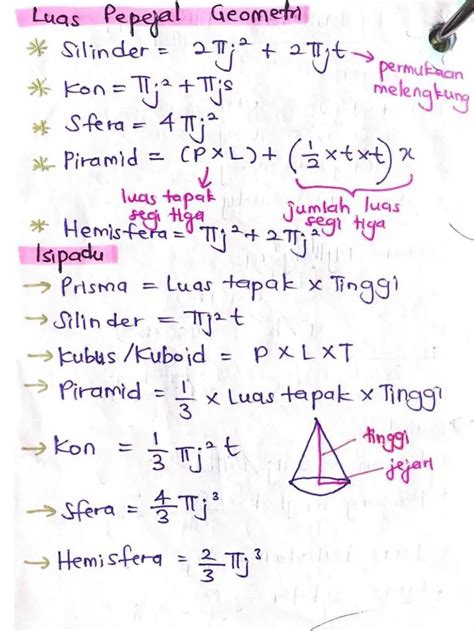 Luas Pepejal Geometri
* Silinder = 2πj² + 2πjt → permukaan melengkung
* Kon = πj² + πjs
* Sfera = 4πj²
* Piramid = (P x L) + (1/2 x t x t) x
luas tapak segi tiga
jumlah luas segi tiga
* Hemisfera = πj² + 2πj²
Isipadu
→ Prisma = Luas tapak x Tinggi
→ Silinder = πj²t
→ Kubus/Kuboid = P x L x T
→ Piramid = 1/3 x Luas tapak x Tinggi
→ Kon = 1/3 πj² t
tinggi
jejari
→ Sfera = 4/3 πj³
→ Hemisfera = 2/3 πj³